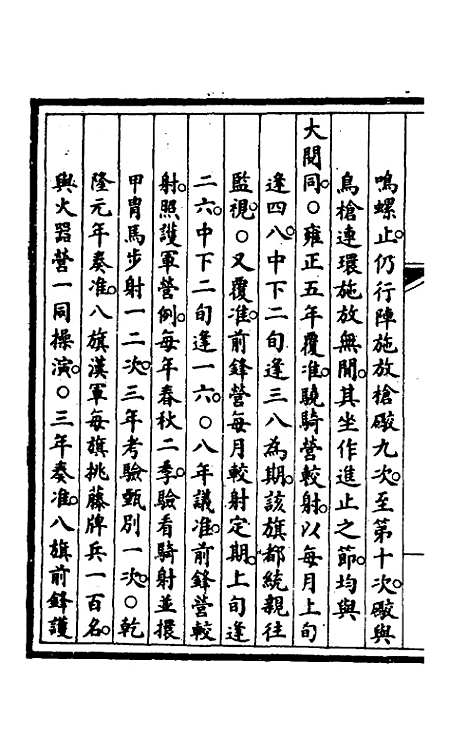 鳴螺止。仍行陣施放槍礮九次。至第十次。礮與
鳥槍連環施放無間。其坐作進止之節。均與
大閱同。○雍正五年覆准。驍騎營較射。以每月上旬
逢四八中下二旬逢三八為期。該旗都統親往
監視。○又覆准。前鋒營每月較射定期。上旬逢
二六。中下二旬逢一六。○八年議准。前鋒營較
射。照護軍營例。每年春秋二季。驗看騎射並擐
甲冑馬步射一二次。三年考驗甄別一次。○乾
隆元年奏准。八旗漢軍每旗挑藤牌兵一百名。
與火器營一同操演。○三年奏准。八旗前鋒護